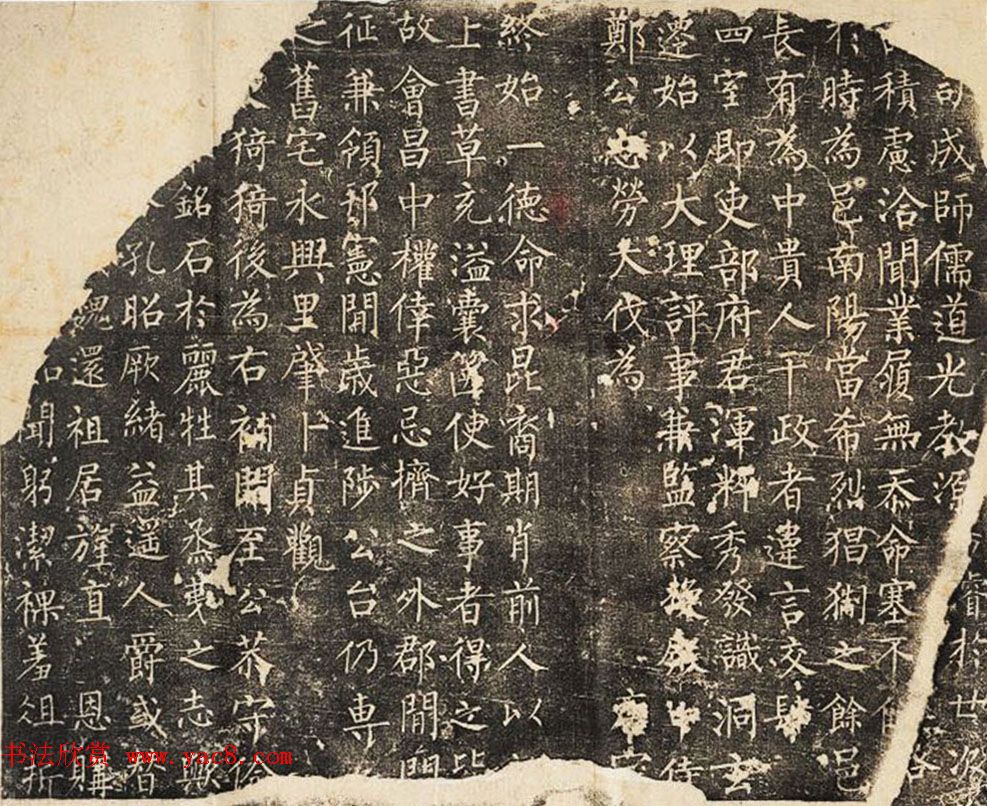 司成師儒道光教源 睿於世次
積慮洽聞業履無忝命塞不
於時為邑南陽當希烈猖 之餘邑
長有為中貴人干政者違言交肆
四室即吏部府君渾粹秀發識洞玄
遷始以大理評事兼監察 殿中侍
鄭公忠勞大伐為
終始一德命求昆裔期肖前人以
上書草充溢囊篋使好事者得之比
故會昌中權倖惡忌擠之外郡閒關
征兼領邦憲閒歲進陟公台仍專
之舊宅永興里肇卜貞觀
猗猗後為右補闕至公恭守儉
銘石於麗牲其烝彝之志歟
孔昭厥緒益遥人爵或
還祖居旌直 恩購
聞躬潔祼羞俎斯
书法欣赏 www.yac8.com